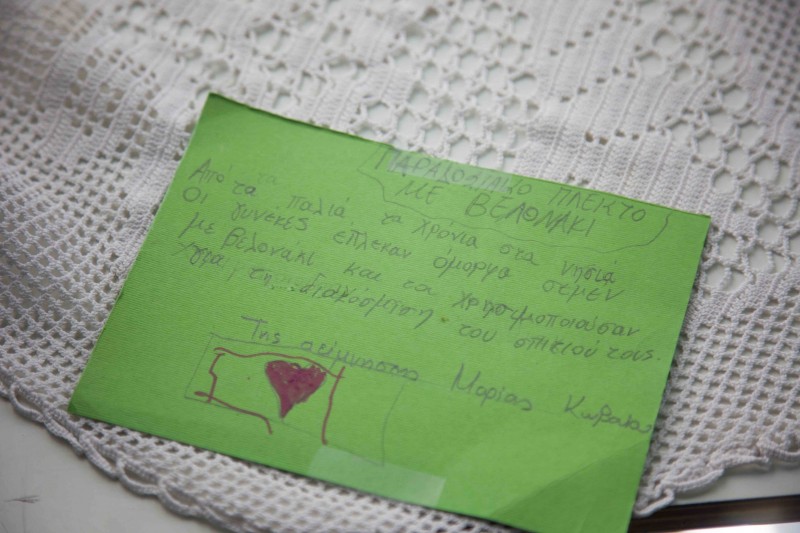 ΠΑΡΑΔΟΣΙΑΚΟ ΠΛΕΚΤΟ
ΜΕ ΒΕΛΟΝΑΚΙ
Από τα παλιά τα χρόνια στα νησιά
Οι γυνέκες επλεκαν όμορφα σεμεν
με βελονάκι και τα χρησιμοποιούσαν
για τη διακόσμηση του σπιτιού τους.
Της αείμνηστης Μαρίας